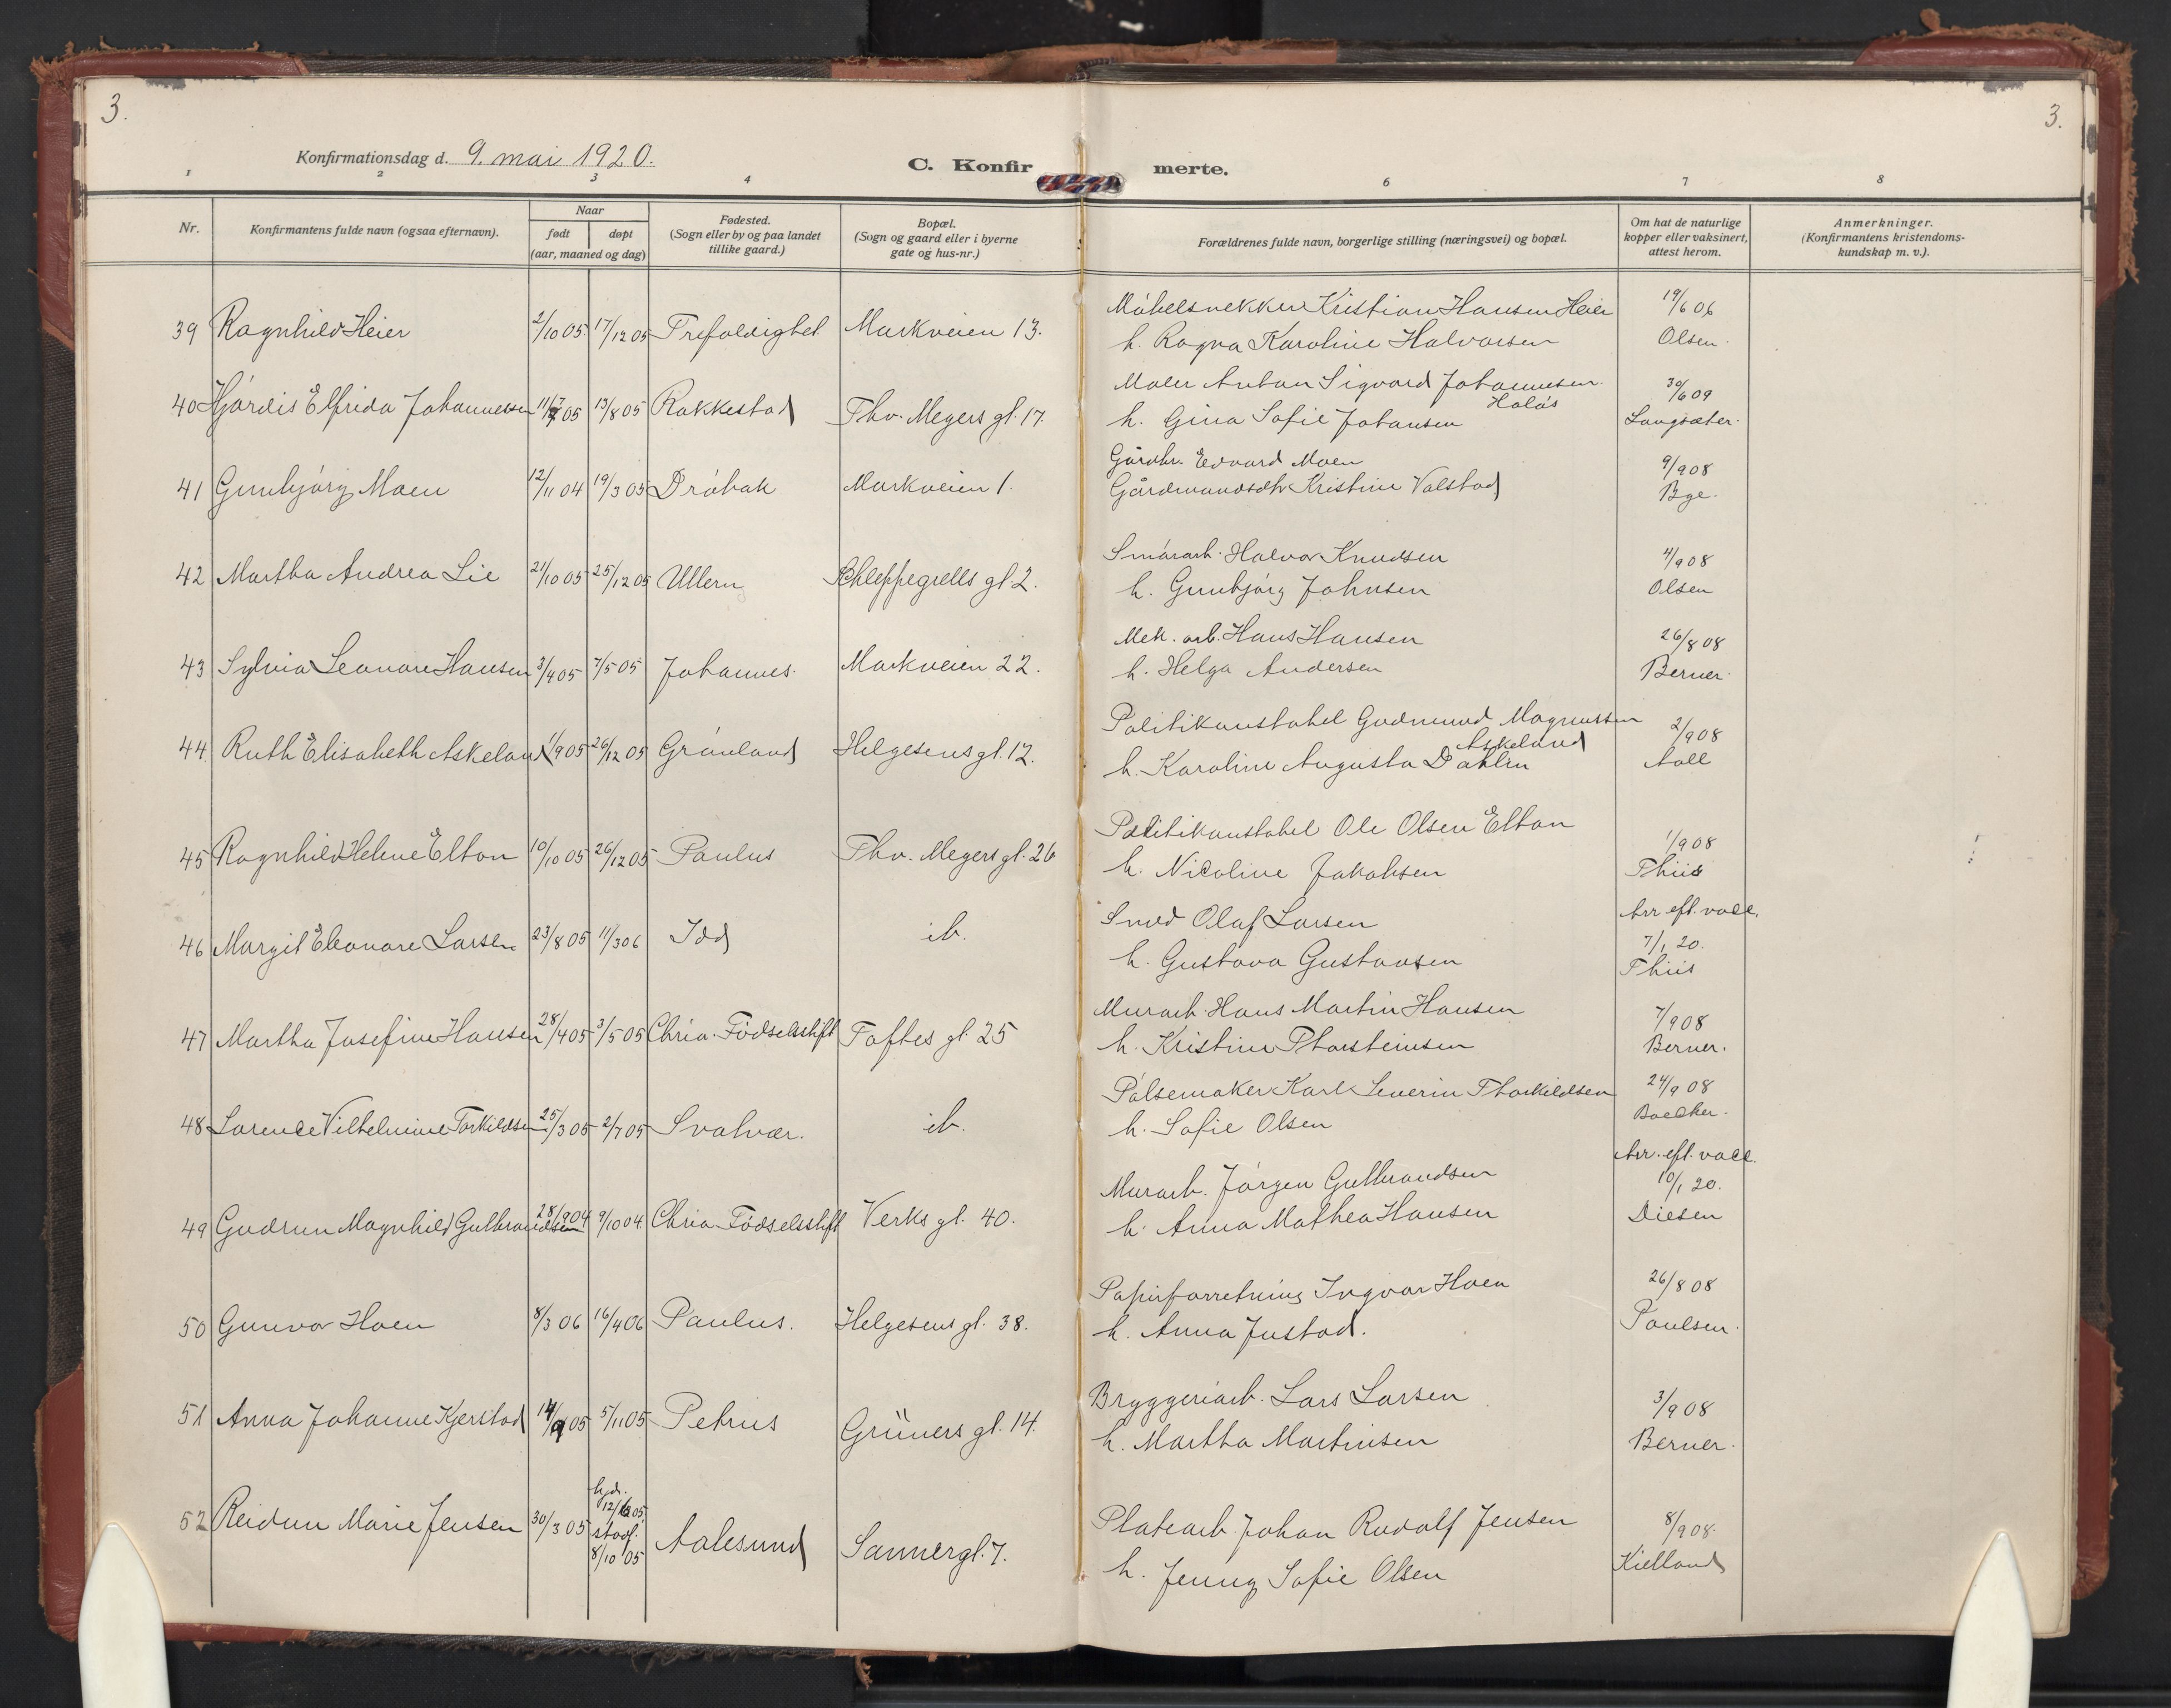 3.
3.
Konfirmationsdag d. 9. mai 1920.
C. Konfirmerte.
1 2 3 4 6 7 8
Nr.
Konfirmantens fulde navn (ogsaa efternavn).
Naar
født døpt
(aar, maaned og dag)
Fødested.
(Sogn eller by og paa landet
tillike gaard.)
Bopæl.
(Sogn og gaard eller i byerne
gate og hus-nr.)
Forældrenes fulde navn, borgerlige stilling (næringsvei) og bopæl.
Om hat de naturlige
kopper eller vaksinert,
attest herom.
Anmerkninger.
(Konfirmantens kristendoms-
kundskap m. v.).
Møbelsnekker Kristian Hansen Heier 19/6 06
39 Ragnhild Heier 2/10 05 17/12 05 Trefoldighet Markveien 13.
h. Ragna Karoline Halvorsen Olsen.
Maler Anton Sigvard Johannesen 30/6 09
Holøs
40 Hjørdis Elfrida Johannessen 11/7 05 13/8 05 Rakkestad Thv. Meyers gt. 17.
h. Gina Sofie Johansen Langsæter.
Gårdbr. Edvard Moen 9/9 08
41 Gunbjørg Moen 12/11 04 19/3 05 Drøbak Markveien 1.
Gårdmandsdtr Kristine Valstad Bye.
Smørarb. Halvor Knudsen 4/9 08
42 Martha Andrea Lie 21/10 05 25/12 05 Ullern Schleppegrells gt. 2.
h. Gunbjørg Johnsen Olsen
Mek. arb. Hans Hansen 26/8 08
43 Sylvia Leonore Hansen 3/4 05 7/5 05 Johannes. Markveien 22.
h. Helga Andersen Berner.
Politikonstabel Gudmund Magnussen 2/9 08
Askeland
44 Ruth Elisabeth Askeland 1/9 05 26/12 05 Grønland Helgesens gt. 12.
h. Karoline Augusta Dahlin Aall
Politikonstabel Ole Olsen Elton 1/9 08
45 Ragnhild Helene Elton 10/10 05 26/12 05 Paulus Thv. Meyers gt. 26
h. Nicoline Jakobsen Thiis
Smed Olaf Larsen Arr eft. vacc.
46 Margit Eleonore Larsen 23/8 05 11/3 06 Idd ib. 7/1 20.
h. Gustava Gustavsen Thiis
Murarb. Hans Martin Hansen 7/9 08
47 Martha Josefine Hansen 28/4 05 3/5 05 Chria. Fødselsstift Toftes gt. 25
h. Kristine Thorsteinsen Berner.
Pølsemaker Karl Severin Thorkildsen 24/9 08
48 Lorence Vilhelmine Torkildsen 25/3 05 2/7 05 Svolvær. ib.
h. Sofie Olsen Boecker.
Arr. eft. vacc.
Murarb. Jørgen Gulbrandsen 10/1 20.
49 Gudrun Magnhild Gulbrandsen 28/9 04 9/10 04 Chria Fødselsstift Verks gt. 40.
h. Anna Mathea Hansen Diesen
Papirforretning Ingvar Hoen 26/8 08
50 Gunvor Hoen 8/3 06 16/4 06 Paulus. Helgesens gt. 38.
h. Anna Justad. Poulsen.
Bryggeriarb. Lars Larsen 3/9 08
51 Anna Johanne Kjerstad 14/9 05 5/11 05 Petrus Grüners gt. 14.
h. Martha Martinsen Berner.
hjd.
Platearb. Johan Rudolf Jensen 8/9 08.
52 Reidun Marie Jensen 30/3 05 stadf. 8/10 05 Aalesund Sannergt. 7.
h. Jenny Sofie Olsen Kielland